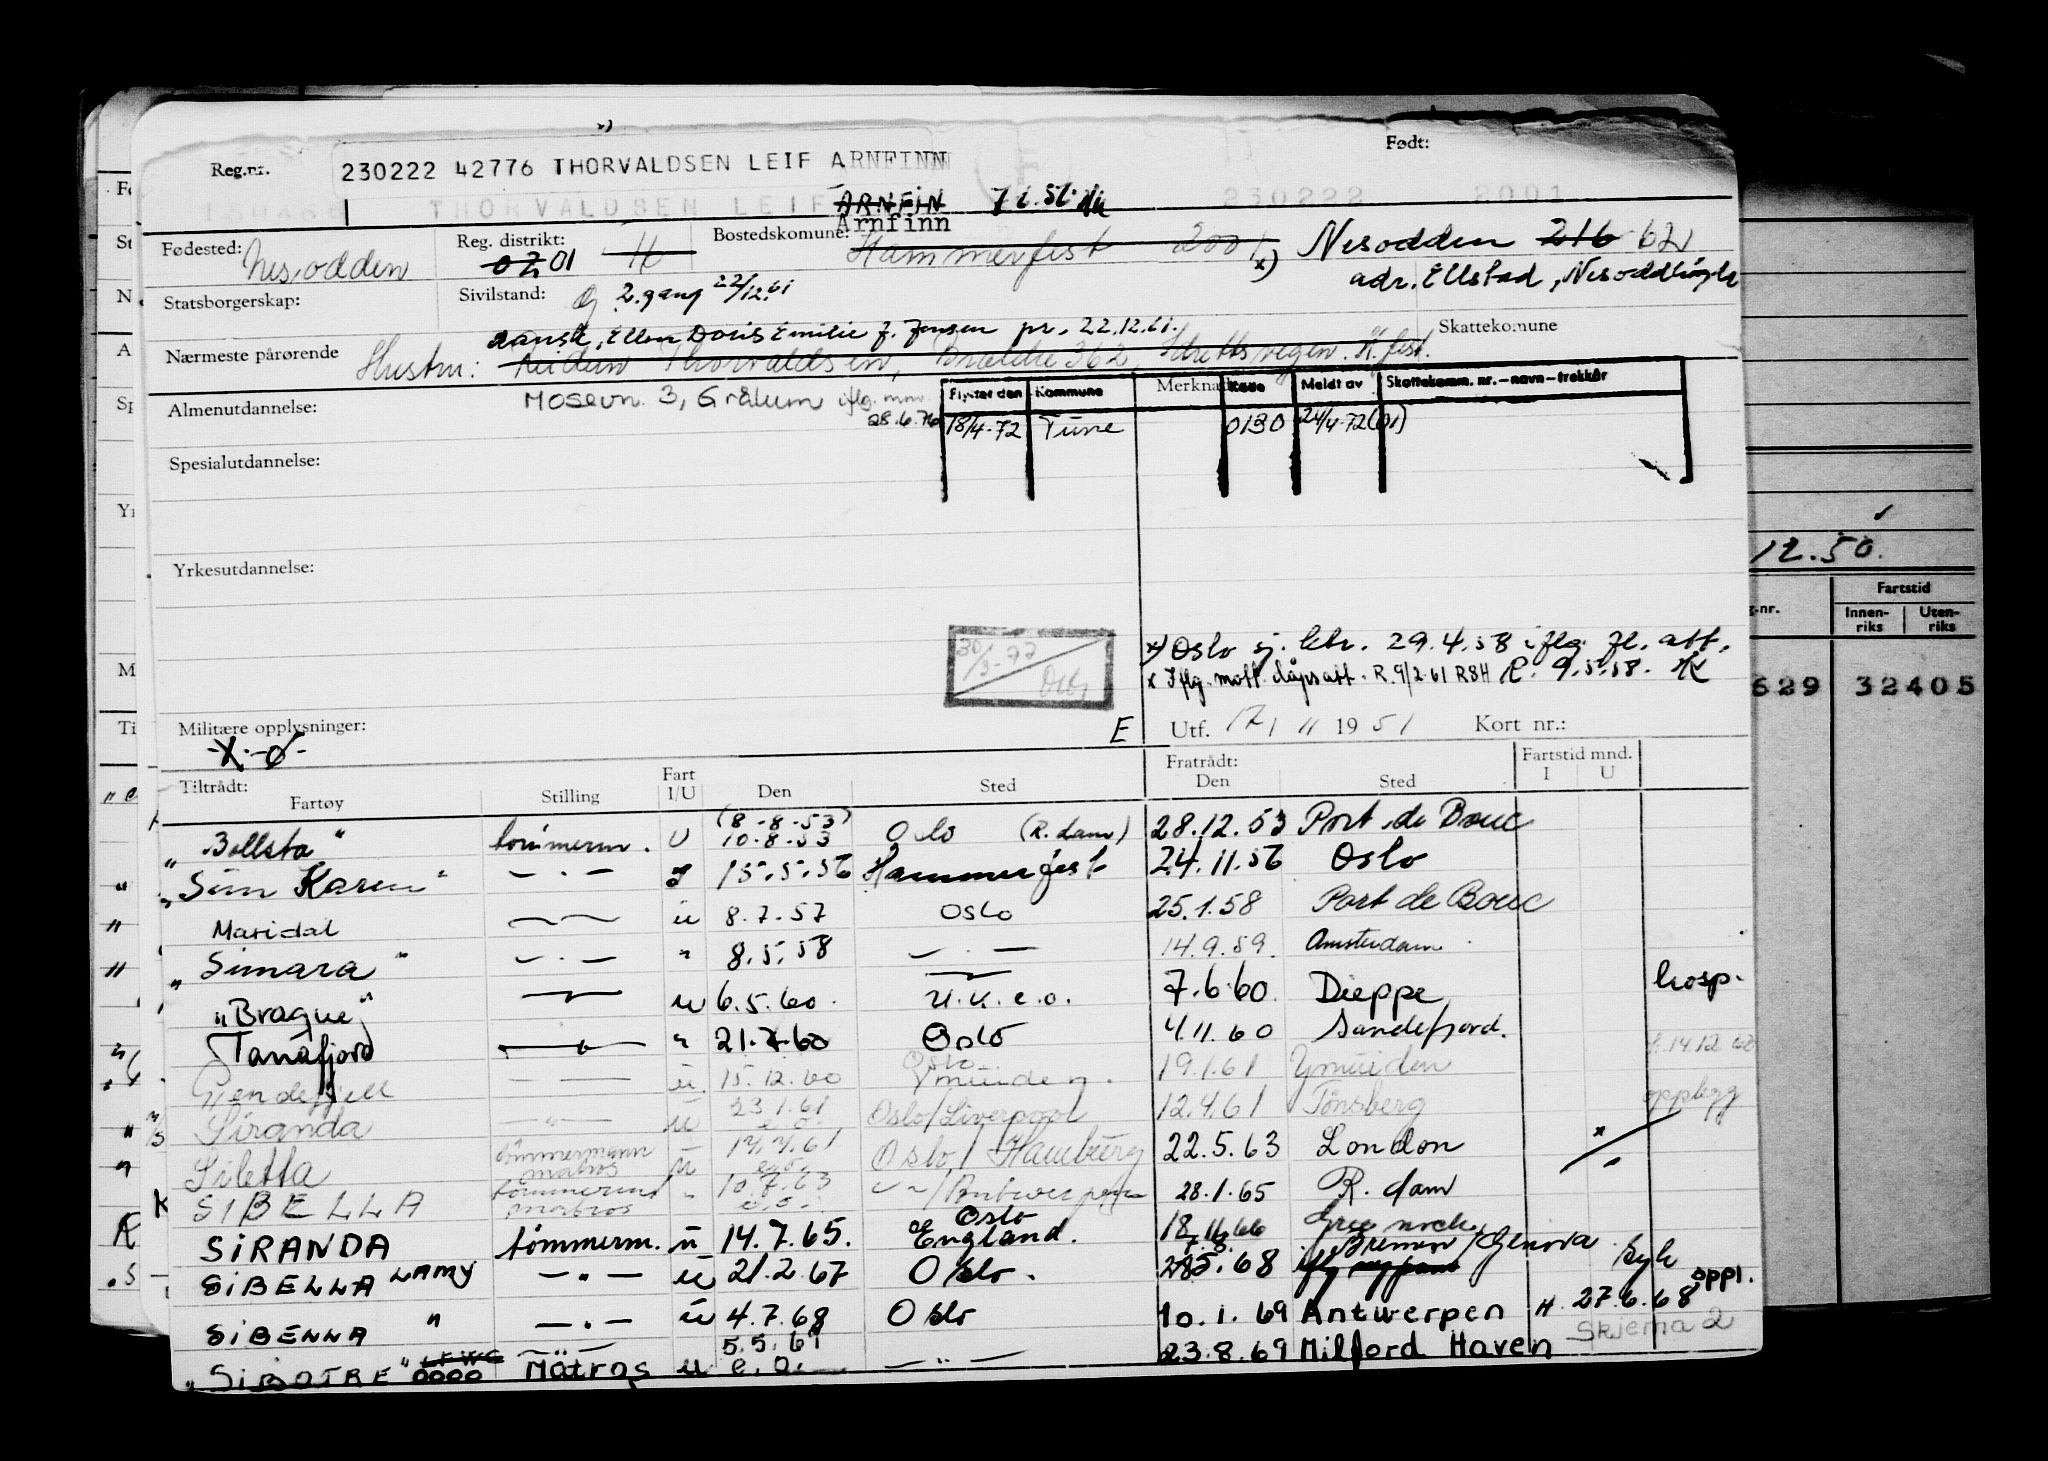 Reg.nr. 230222 42776 THORVALDSEN LEIF ARNFINN Født:
THORVALDSEN LEIF ARNFIN 230222 2001
Arnfinn
Fødested: Nesodden Reg. distrikt: 02 01 H Bostedskommune: Hammerfest 2001 *) Nesodden 216 62
adr. Ellstad,
Statsborgerskap: Sivilstand: G 2. gang 22/12.61
dansk, Ellen Doris Emilie J. Jensen pr. 22.12.61. Skattekomune
Nærmeste pårørende Hustru: Thorvaldsen, 362,
Almenutdannelse: Mosevn. 3, Grålum iflg. mm. 28.6.76
Flyttet den Kommune Merkn Kode Meldt av Skattekomm. nr. – navn – trekkår
18/4-72 Tune 0130 24/4-72 (01)
Spesialutdannelse:
Yrkesutdannelse:
12.50.
g.nr. Fartstid
Innen-riks Uten-riks
629 32405
30/3-77
*) Oslo sj. 29.4.58 iflg. fl. att.
x Iflg. mott. R. 9/2-61 R8H R. 9.5.58.
Militære opplysninger: E Utf. 17/ 11 1951 Kort nr.:
Tiltrådt: Fratrådt: Fartstid mnd.
Fartøy Stilling Fart I/U Den Sted Den Sted I U
"Bollsta" tømmerm. U (8-8-53) 10.8.53 Oslo (R.dam) 28.12.53 Port de Bouc
"Sun Karen" — . — I 15.5.56 Hammerfest 24.11.56 Oslo
Maridal u 8.7.57 Oslo 25.1.58 Port de Bouc
"Simara" — . — " 8.5.58 — . — 14.9.59. Amsterdam
"Brague" u 6.5.60. u.k.e.o. 7.6.60. Dieppe hosp.
Tanafjord — " — " 21.7.60 Oslo 4.11.60 Sandefjord.
u. 15.12.60 Oslo Ymuiden. 19.1.61 Ymuiden 14.12.60
Siranda — " — u 23.1.61 e.o. Oslo/Liverpool 12.4.61 Tønsberg opplegg
Siletta tømmermann matros u 14.4.61 e.o. Oslo/Hamburg 22.5.63 London
SIBELLA tømmerm. matros " 10.7.63 e.o. — " —/Antwerpen 28.1.65 R.dam
SIRANDA tømmerm. u 14.7.65. Oslo England. 18.11.66 Greenock
SIBELLA LAMY — " — u 21.2.67 Oslo. 28.5.68 Bremen/Genova syk
SIBELLA " — " — u 4.7.68 Oslo 10.1.69 Antwerpen H. 27.6.68 oppl.
"SIBOTRE" Matros u 5.5.69 e.o. — " — 23.8.69 Milford Haven Skjema 2